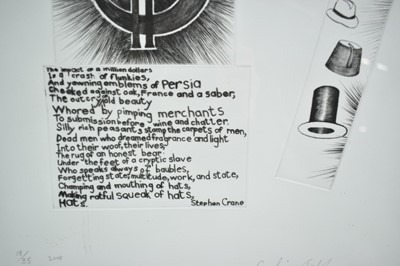 The impact of a million dollars
Is a crash of flunkies,
And yawning emblems of Persia
Cheeked against oak, France and a saber,
The outcry of old beauty
Whored by pimping merchants
To submission before wine and chatter.
Silly rich peasants stamp the carpets of men,
Dead men who dreamed fragrance and light
Into their woof, their lives;
The rug of an honest bear
Under the feet of a cryptic slave
Who speaks always of baubles,
Forgetting state, multitude, work, and state,
Champing and mouthing of hats,
Making ratful squeak of hats,
Hats.
Stephen Crane